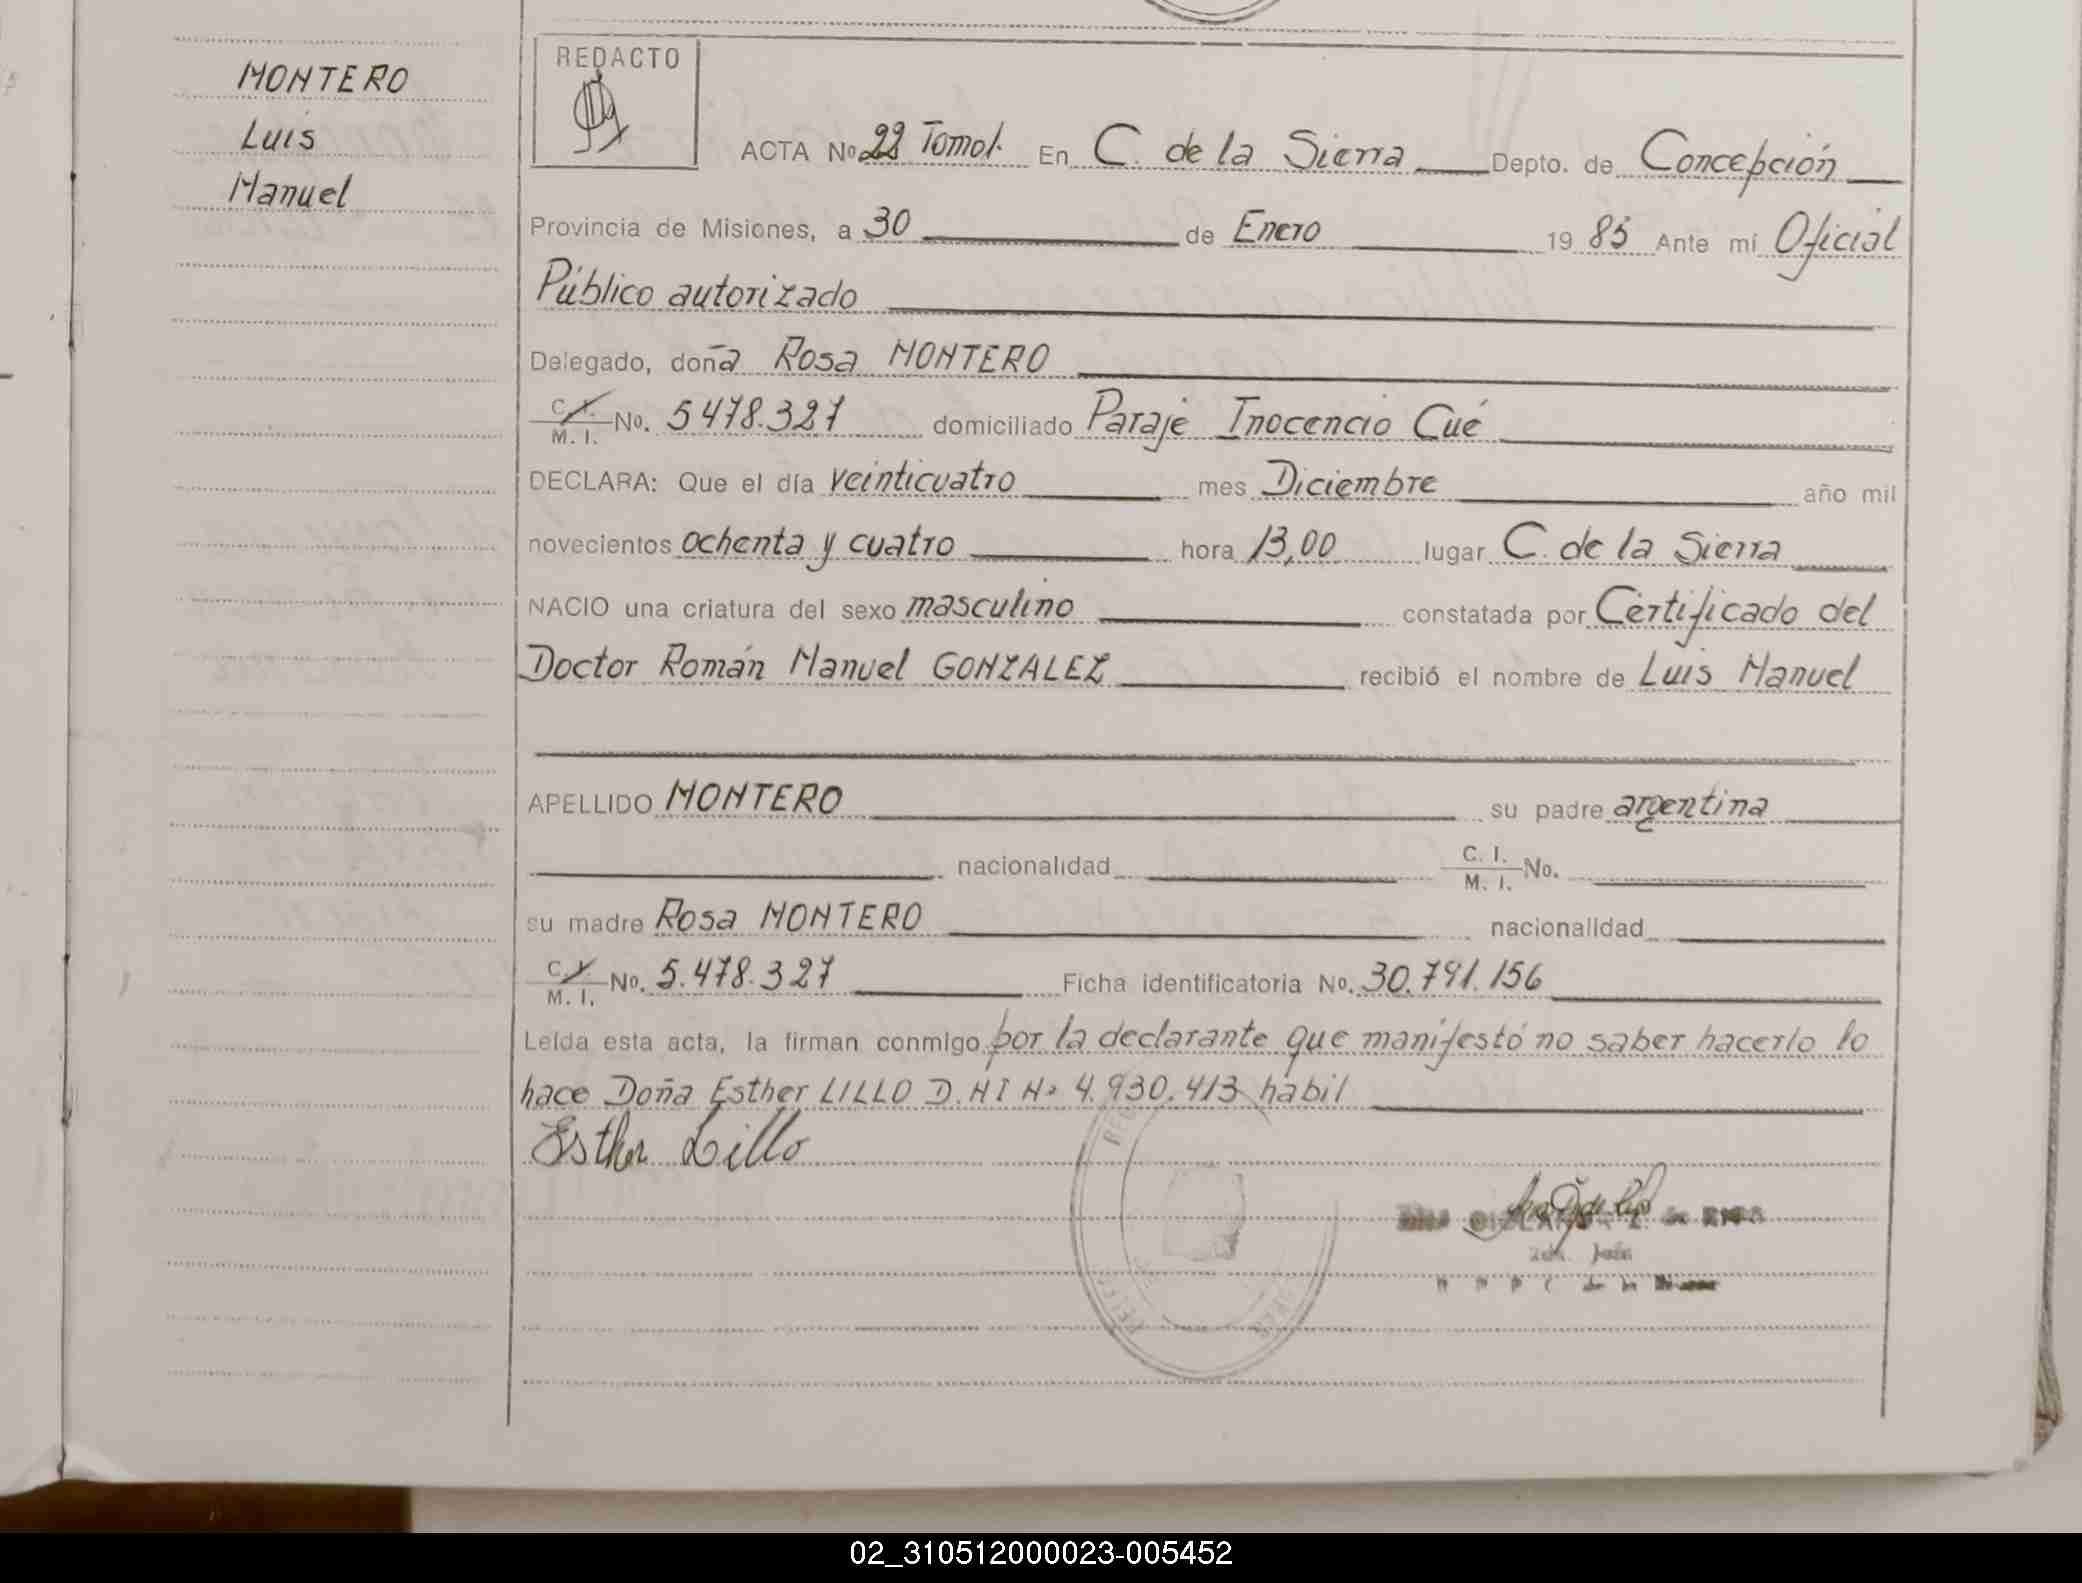 MONTERO
Luis
Manuel
REDACTO
ACTA No 22 Tomo I. En C. de la Sierra Depto. de Concepción
Provincia de Misiones, a 30 de Enero 19 85 Ante mí Oficial
Público autorizado
Delegado, doña Rosa MONTERO
C. I. M. I. No. 5478.327 domiciliado Paraje Inocencio Cué
DECLARA: Que el día veinticuatro mes Diciembre año mil
novecientos ochenta y cuatro hora 13,00 lugar C. de la Sierra
NACIO una criatura del sexo masculino constatada por Certificado del
Doctor Román Manuel GONZALEZ recibió el nombre de Luis Manuel
APELLIDO MONTERO su padre argentina
nacionalidad C. I. M. I. No.
su madre Rosa MONTERO nacionalidad
C. I. M. I. No. 5.478.327 Ficha identificatoria No. 30.791.156
Leída esta acta, la firman conmigo por la declarante que manifestó no saber hacerlo lo
hace Doña Esther LILLO D.N I Nº 4.930.413 hábil
Esther Lillo
02_310512000023-005452